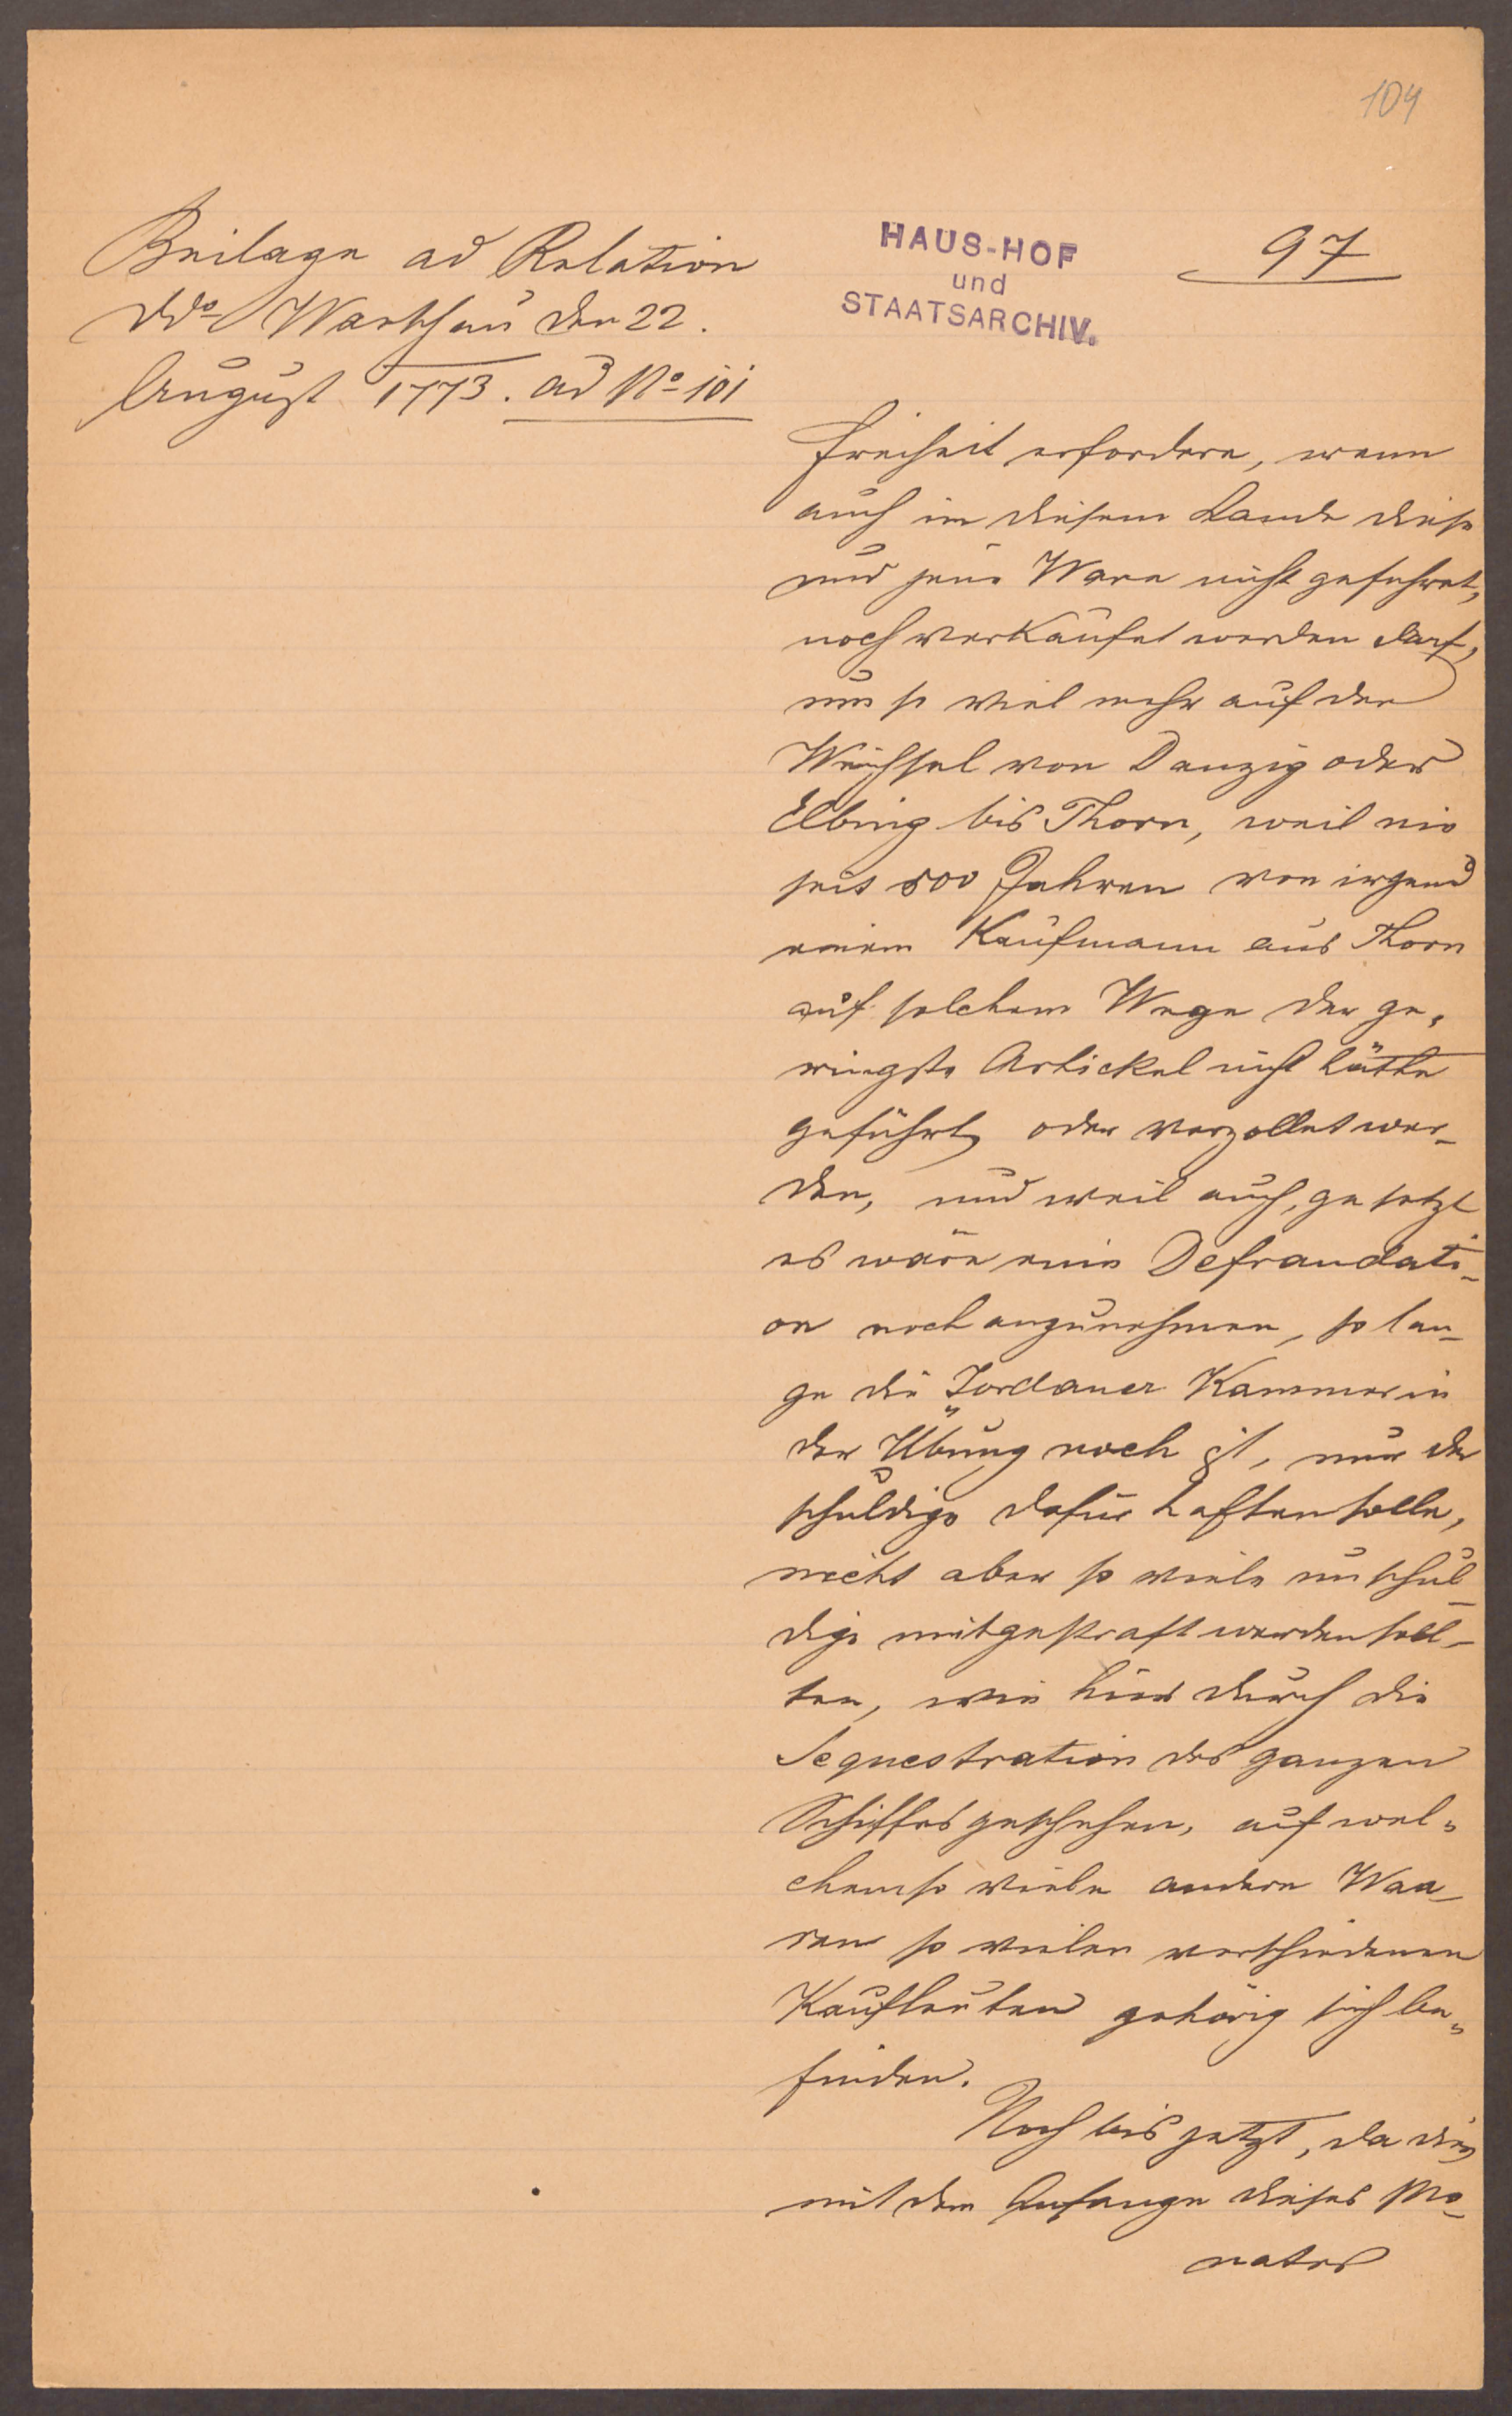 104
Beilage ad Relation
ddo Warschau den 22.
August 1773. ad No 101
HAUS-HOF
und
STAATSARCHIV.
97
Freiheit erfordere, wenn
auch in diesem Lande diese
und jene Ware nicht gefuhret,
noch verkaufet werden darf,
um so viel mehr auf der
Weichsel von Danzig oder
Elbing bis Thorn, weil nie
seit 500 Jahren von irgend
einem Kaufmann aus Thorn
auf solchem Wege der ge„
ringste Artickel nicht hätte
geführt, oder verzollet wer-
den, und weil auch, gesetzt
es wäre eine Defraudati-
on noch anzunehmen, so lan-
ge die Fordaner Kammer in
der Übung noch ist, nur der
schuldige dafür haften solle,
nicht aber so viele unschul-
dige mitgestraft werden soll-
ten, wie hier durch die
Sequestration des ganzen
Schiffes geschehen, auf wel„
chem so viele andere Waa-
ren so vielen verschiedenen
Kaufleuten gehörig sich be„
finden.
Noch bis jetzt, da die
mit dem Anfange dieses Mo-
nates